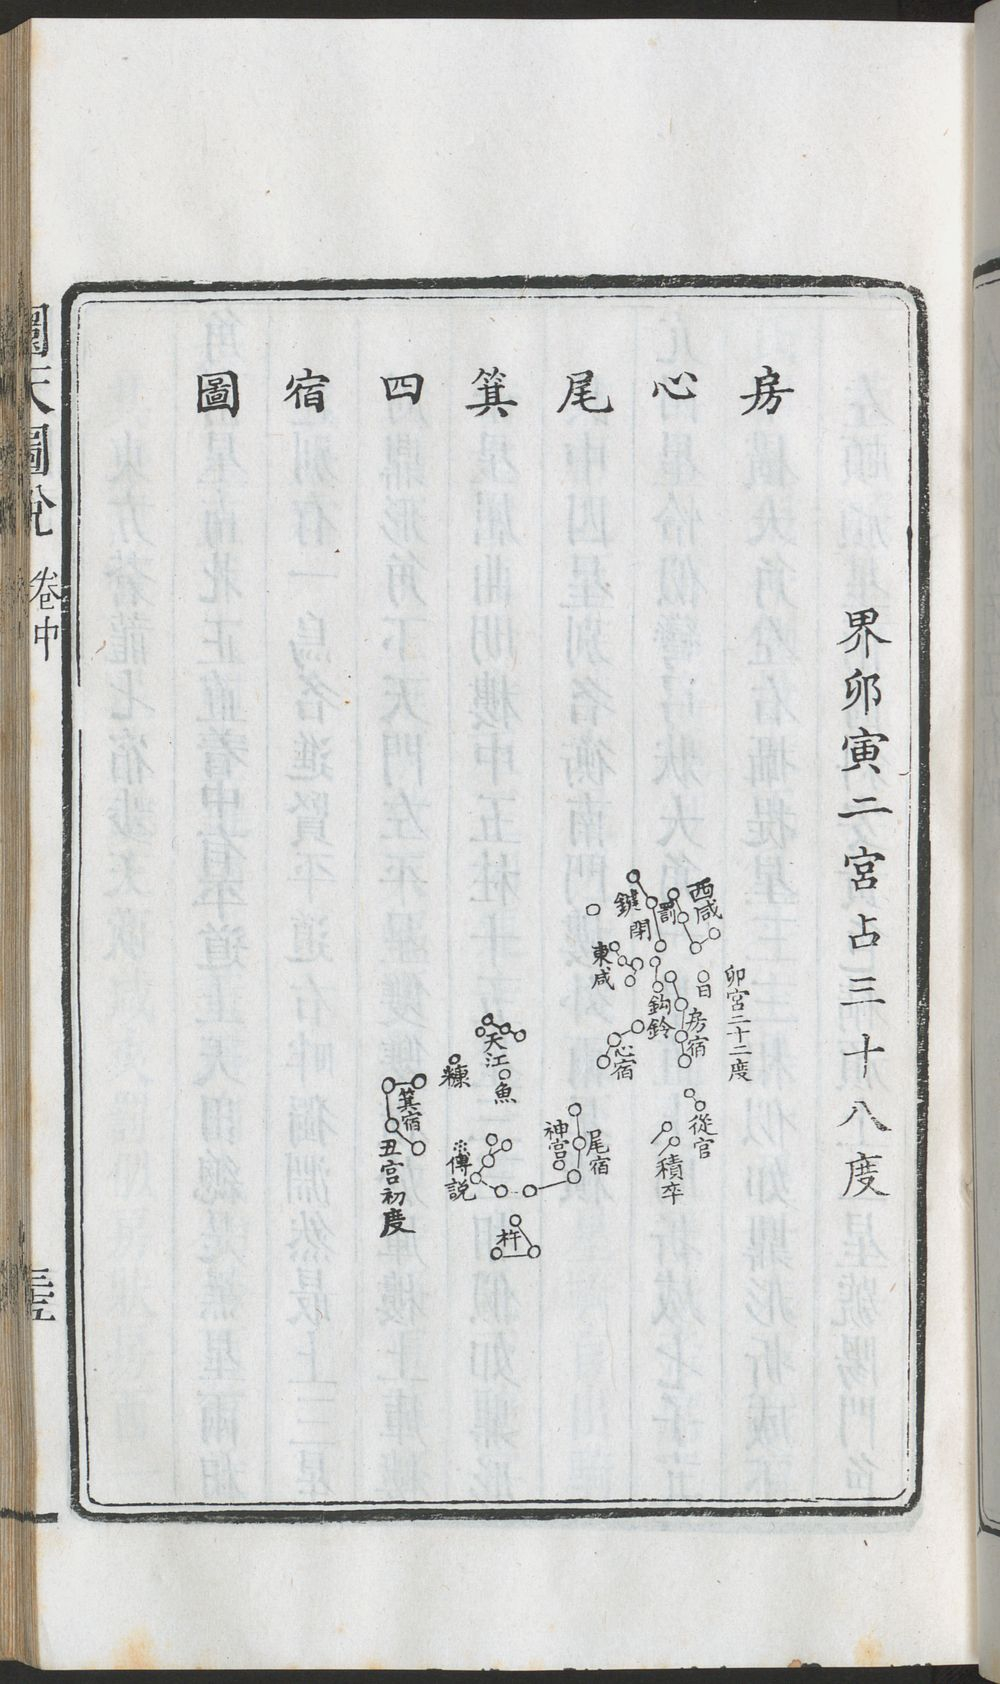 房心尾箕四宿圖
界卯寅二宮占三十八度
西咸
罰
鍵閉
東咸
日
卯宮二十二度
房宿
鈎鈐
心宿
從官
積卒
尾宿
神宮
天江
魚
糠
傳説
杵
箕宿
丑宮初度
圜天圖說
卷中